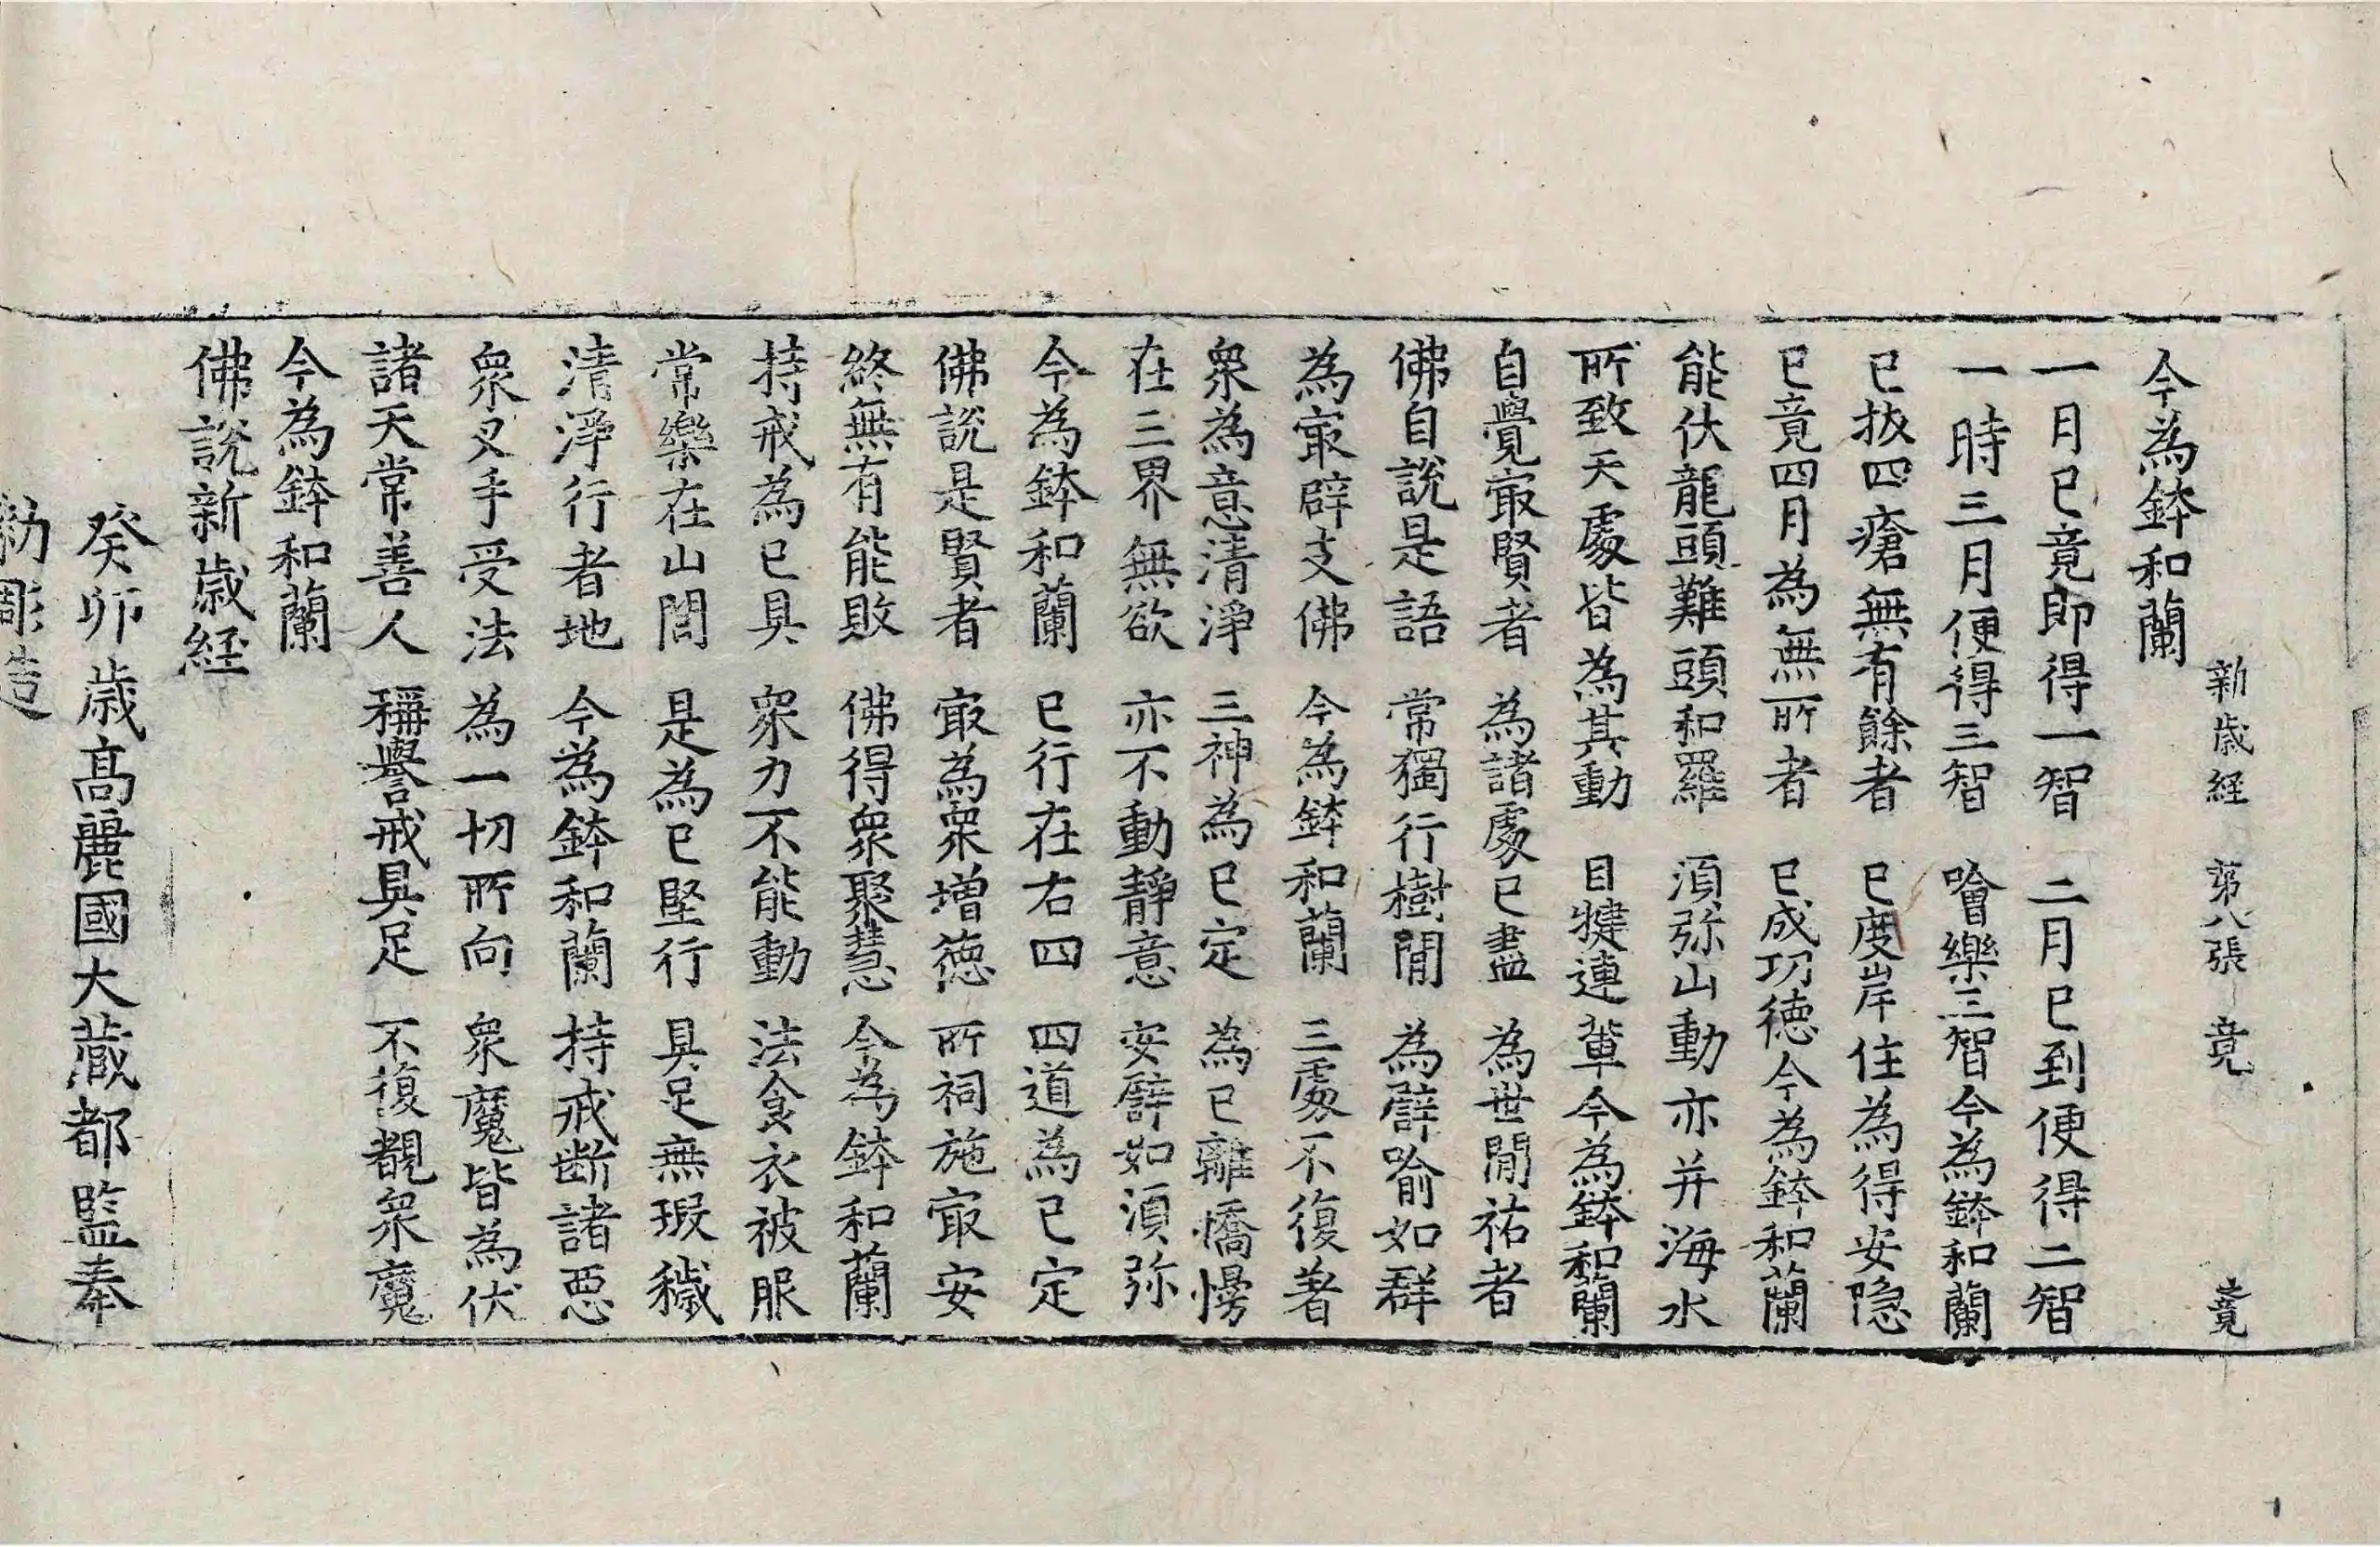 新歳経 第八張 竟 竟
今為鉢和蘭
一月已竟即得一智 二月已到便得二智
一時三月便得三智 噲樂三智今為鉢和蘭
已拔四瘡無有餘者 已度岸住為得安隠
已竟四月為無所者 已成功徳今為鉢和蘭
能伏龍頭難頭和羅 湏弥山動亦并海水
所致天處皆為其動 目揵連輩今為鉢和蘭
自覺冣賢者 為諸處已盡 為世閒祐者
佛自説是語 常獨行樹閒 為譬喻如群
為冣辟支佛 今為鉢和蘭 三處不復著
衆為意清淨 三神為已定 為已離憍慢
在三界無欲 亦不動静意 安譬如湏弥
今為鉢和蘭 已行在右四 四道為已定
佛説是賢者 冣為衆增徳 所祠施冣安
終無有能敗 佛得衆聚慧 今為鉢和蘭
持戒為已具 衆力不能動 法食衣被服
常樂在山閒 是為已堅行 具足無瑕穢
清淨行者地 今為鉢和蘭 持戒断諸惡
衆叉手受法 為一切所向 衆魔皆為伏
諸天常善人 稱譽戒具足 不復覩衆魔
今為鉢和蘭
佛説新歳経
癸卯歳髙麗國大蔵都監奉
勑彫造